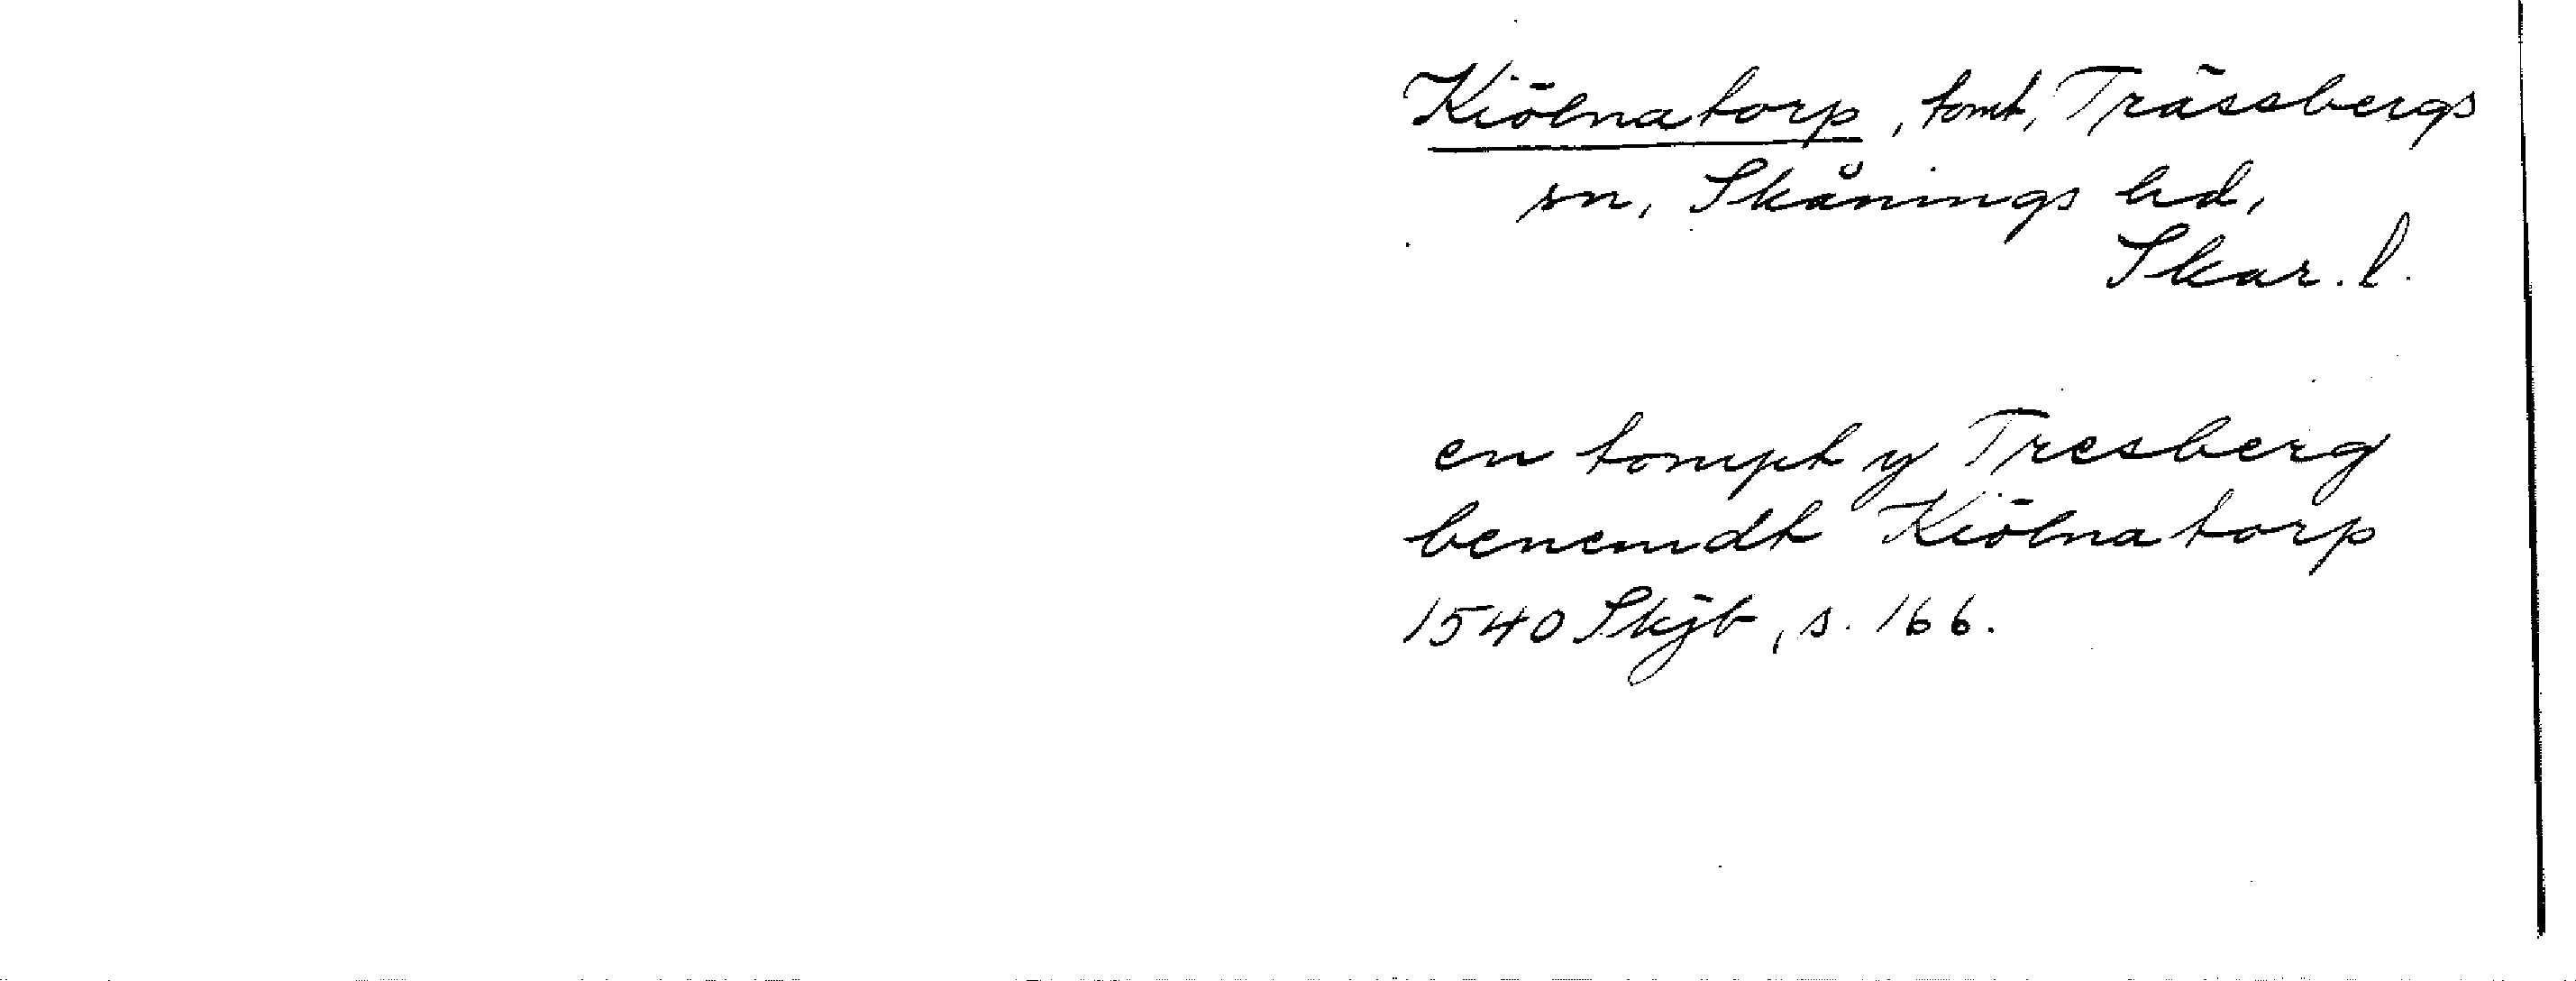 Kiölnatorp, tomt, Trässbergs
sn, Skånings hd,
Skar. l.
en tompt y Tresberg
benemdt Kiölnatorp
1540 Skjb, s. 166.